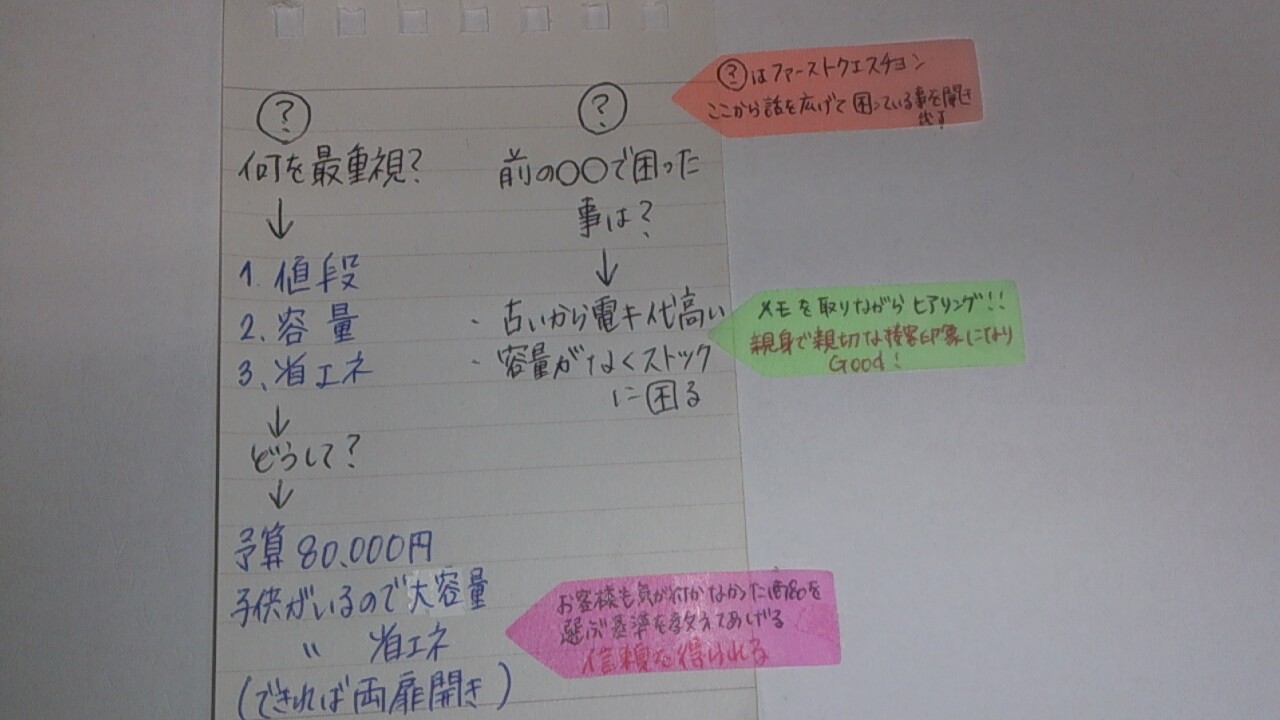 ?
何を最重視?
↓
1. 値段
2. 容量
3. 省エネ
↓
どうして?
↓
予算 80,000円
子供がいるので大容量
〃 省エネ
(できれば両扉開き)
?
前の〇〇で困った
事は?
↓
・古いから電キ代高い
・容量がなくストック
に困る
?はファーストクエスチョン
ここから話を広げて困っている事を聞き
メモを取りながらヒアリング!!
親身で親切な接客印象になり
Good!
お客様も気が付かなかった商品を
選ぶ基準を教えてあげる
信頼を得られる